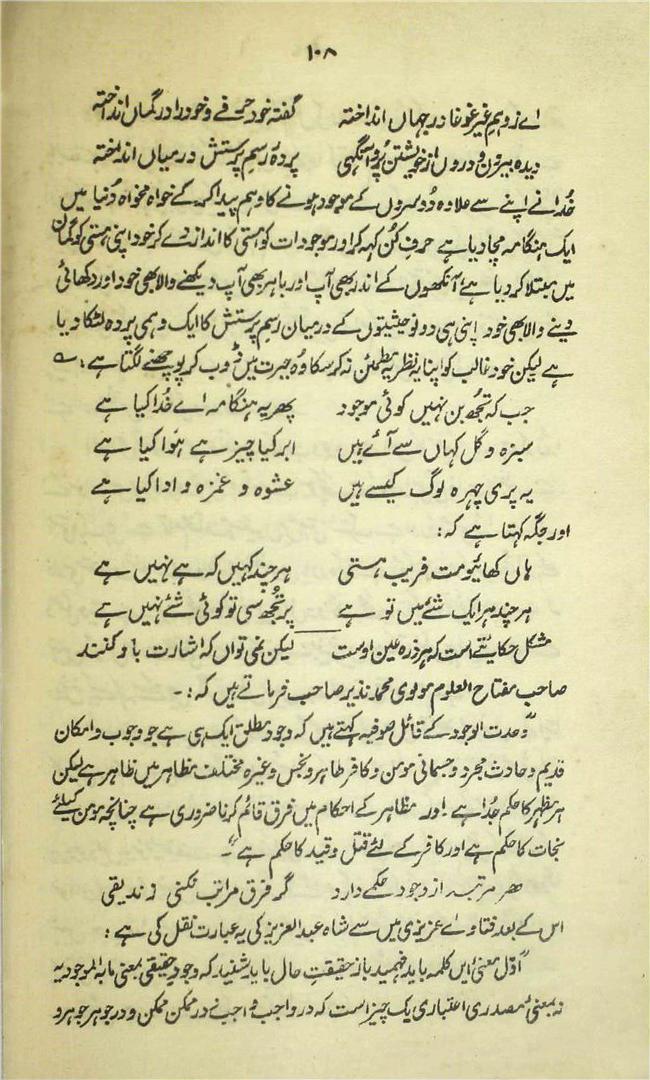 ۱۰۸
اے ز وہمِ غیر غوغا در جہاں انداختہ گفتہ خود حرفے و خود را در گماں انداختہ
دیدہ بیرون و دروں از خویشتن پُر وانگہی پردۂ رسمِ پرستش درمیاں انداختہ
خُدا نے اپنے سے علاوہ دُوسروں کے موجود ہونے کا وہم پیدا کر کے خواہ مخواہ دُنیا میں
ایک ہنگامہ مچا دیا ہے حرفِ کُن کہہ کر اور موجودات کو ہستی کا انداز دے کر خود اپنی ہستی کو گمان
میں مبتلا کر دیا ہے آنکھوں کے اندر بھی آپ اور باہر بھی آپ دیکھنے والا بھی خود اور دکھائی
دینے والا بھی خود اپنی ہی دونو حیثیتوں کے درمیان رسمِ پرستش کا ایک وہمی پردہ لٹکا دیا
ہے لیکن خود غالب کو اپنا یہ نظریہ مطمئن نہ کر سکا وہ حیرت میں ڈوب کر پوچھنے لگتا ہے :۔
جب کہ تجھُ بن نہیں کوئی موجود پھر یہ ہنگامہ اے خُدا کیا ہے
سبزہ و گل کہاں سے آئے ہیں ابر کیا چیز ہے ہَوا کیا ہے
یہ پری چہرہ لوگ کیسے ہیں عشوہ و غمزہ و ادا کیا ہے
اور جگہ کہتا ہے کہ:
ہاں کھائیو مت فریب ہستی ہر چند کہیں کہ ہے نہیں ہے
ہر چند ہر ایک شئے میں تو ہے پر تجُھ سی تو کوئی شئے نہیں ہے
مشکل حکایتے است کہ ہر ذرہ عین اوست لیکن نمی تواں کہ اشارت باو کنند
صاحب مفتاح العلوم مولوی محمد نذیر صاحب فرماتے ہیں کہ :۔
"وحدت الوجود کے قائل صوفیہ کہتے ہیں کہ وجود مطلق ایک ہی ہے جو وجوب و امکان
قدیم و حادث مجرد و جسمانی مومن و کافر طاہر و نجس وغیرہ مختلف مظاہر میں ظاہر ہے لیکن
ہر مظہر کا حکم جُدا ہے۔ اور مظاہر کے احکام میں فرق قائم کرنا ضروری ہے چنانچہ مومن کیلئے
نجات کا حکم ہے اور کافر کے لئے قتل و قید کا حکم ہے"۔
ہر مرتبہ از وجود حکمے دارد گر فرق مراتب نکنی زندیقی
اس کے بعد فتاوے عزیزی میں سے شاہ عبدالعزیز کی یہ عبارت نقل کی ہے :
"اوّل معنئِ ایں کلمہ باید فہمید باز حقیقتِ حال باید شنید کہ وجودِ حقیقی بمعنی مابہ الموجودیہ
نہ بمعنئِ مصدری اعتباری یک چیز است کہ در واجب واجب در ممکن ممکن و در جوہر جوہر و